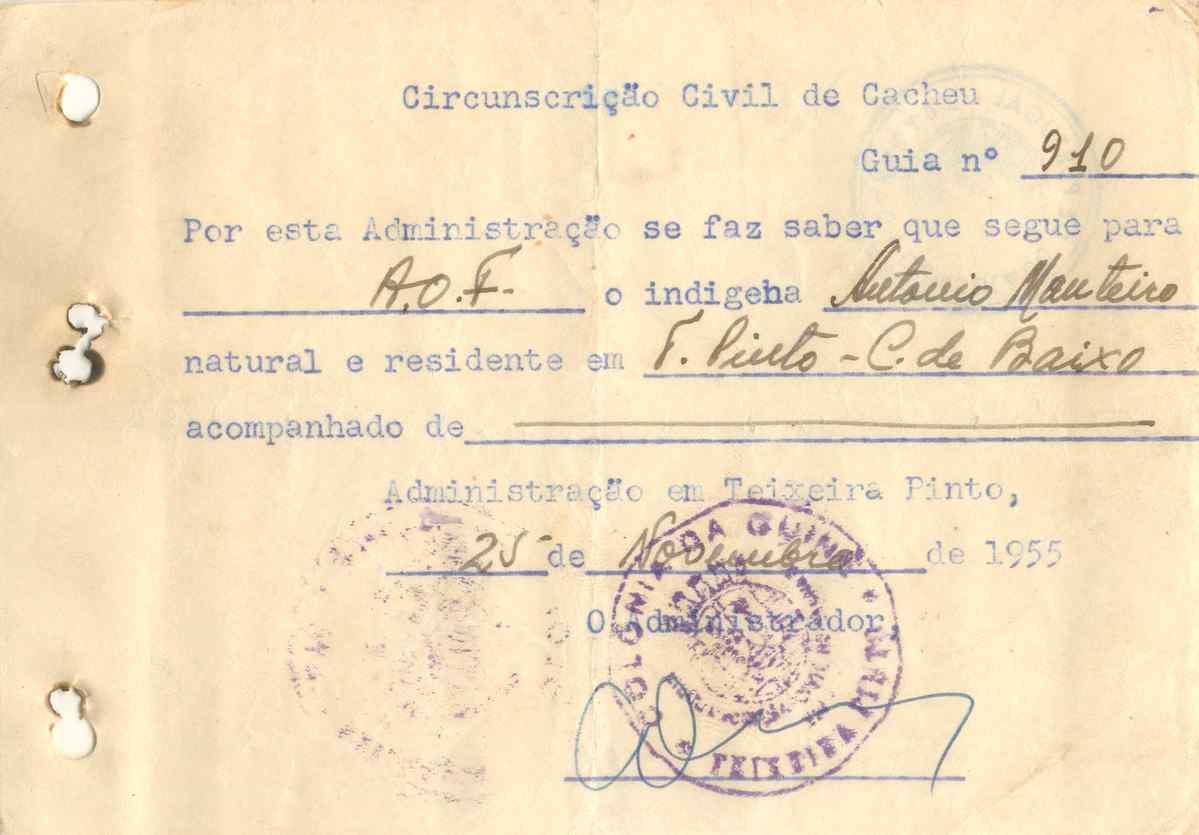 Circunscrição Civil de Cacheu
Guia nº 910
Por esta Administração se faz saber que segue para
A.O.F. o indigeha Antonio Manteiro
natural e residente em T. Pinto - C. de Baixo
acompanhado de
Administração em Teixeira Pinto,
25 de Novembro de 1955
O Administrador,
COLONIA DA GUINÉ
TEIXEIRA PINTO